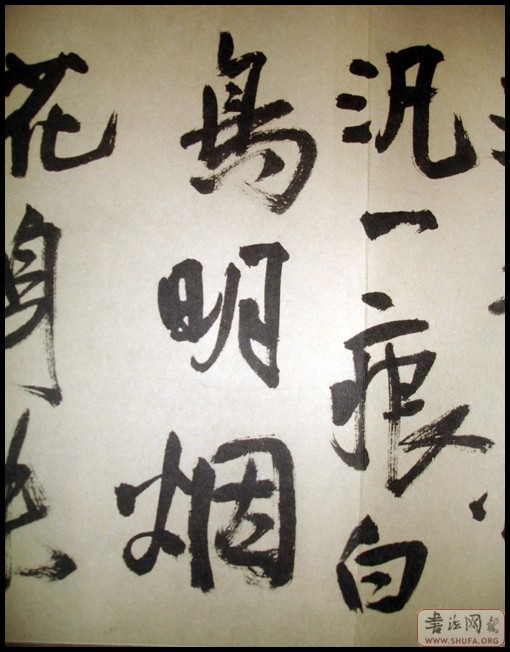 汎一痕白
鳥明烟
花身
書法网
WWW.SHUFA.ORG